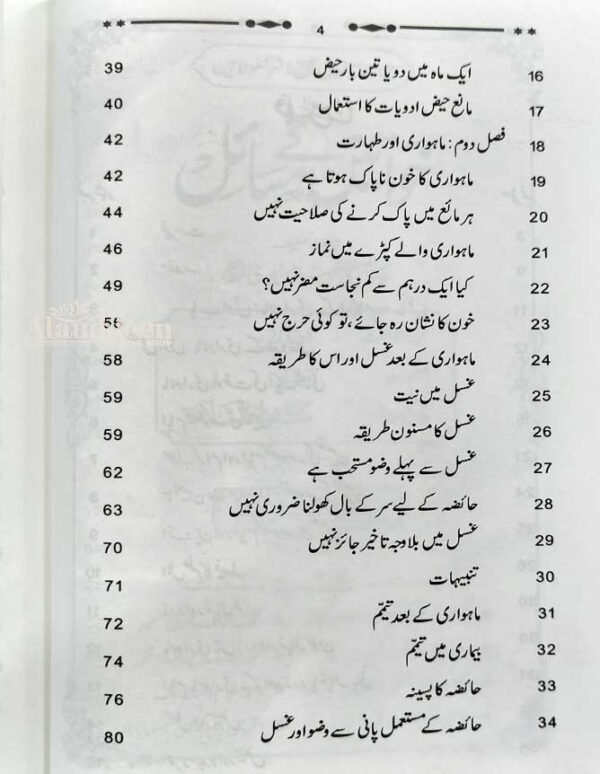 4
16 ایک ماہ میں دو یا تین بار حیض 39
17 مانع حیض ادویات کا استعمال 40
18 فصل دوم : ماہواری اور طہارت 42
19 ماہواری کا خون ناپاک ہوتا ہے 42
20 ہر مائع میں پاک کرنے کی صلاحیت نہیں 44
21 ماہواری والے کپڑے میں نماز 46
22 کیا ایک درہم سے کم نجاست مضر نہیں؟ 49
23 خون کا نشان رہ جائے، تو کوئی حرج نہیں 56
24 ماہواری کے بعد غسل اور اس کا طریقہ 58
25 غسل میں نیت 59
26 غسل کا مسنون طریقہ 59
27 غسل سے پہلے وضو مستحب ہے 62
28 حائضہ کے لیے سر کے بال کھولنا ضروری نہیں 63
29 غسل میں بلاوجہ تاخیر جائز نہیں 70
30 تنبیہات 71
31 ماہواری کے بعد تیمّم 72
32 بیماری میں تیمّم 74
33 حائضہ کا پسینہ 76
34 حائضہ کے مستعمل پانی سے وضو اور غسل 80